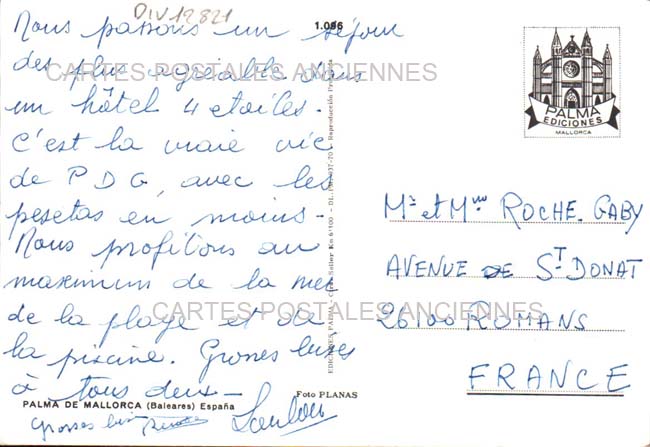 DIV 12821
1.086
Nous passons un séjour
des plus agréable dans
un hôtel 4 etoiles.
C'est la vraie vie
de P D G, avec les
pesetas en moins.
Nous profitons au
maximum de la mer
de la plage et de
la piscine. Grosses bises
à tous deux_
Grosses bises
CARTES POSTALES ANCIENNES
CARTES POSTALES ANCIENNES
PALMA DE MALLORCA (Baleares) España
Foto PLANAS
EDICIONES PALMA
Reproducción
PALMA
EDICIONES
MALLORCA
Mr et Mme ROCHE. GABY
AVENUE DE ST DONAT
26100 ROMANS
FRANCE